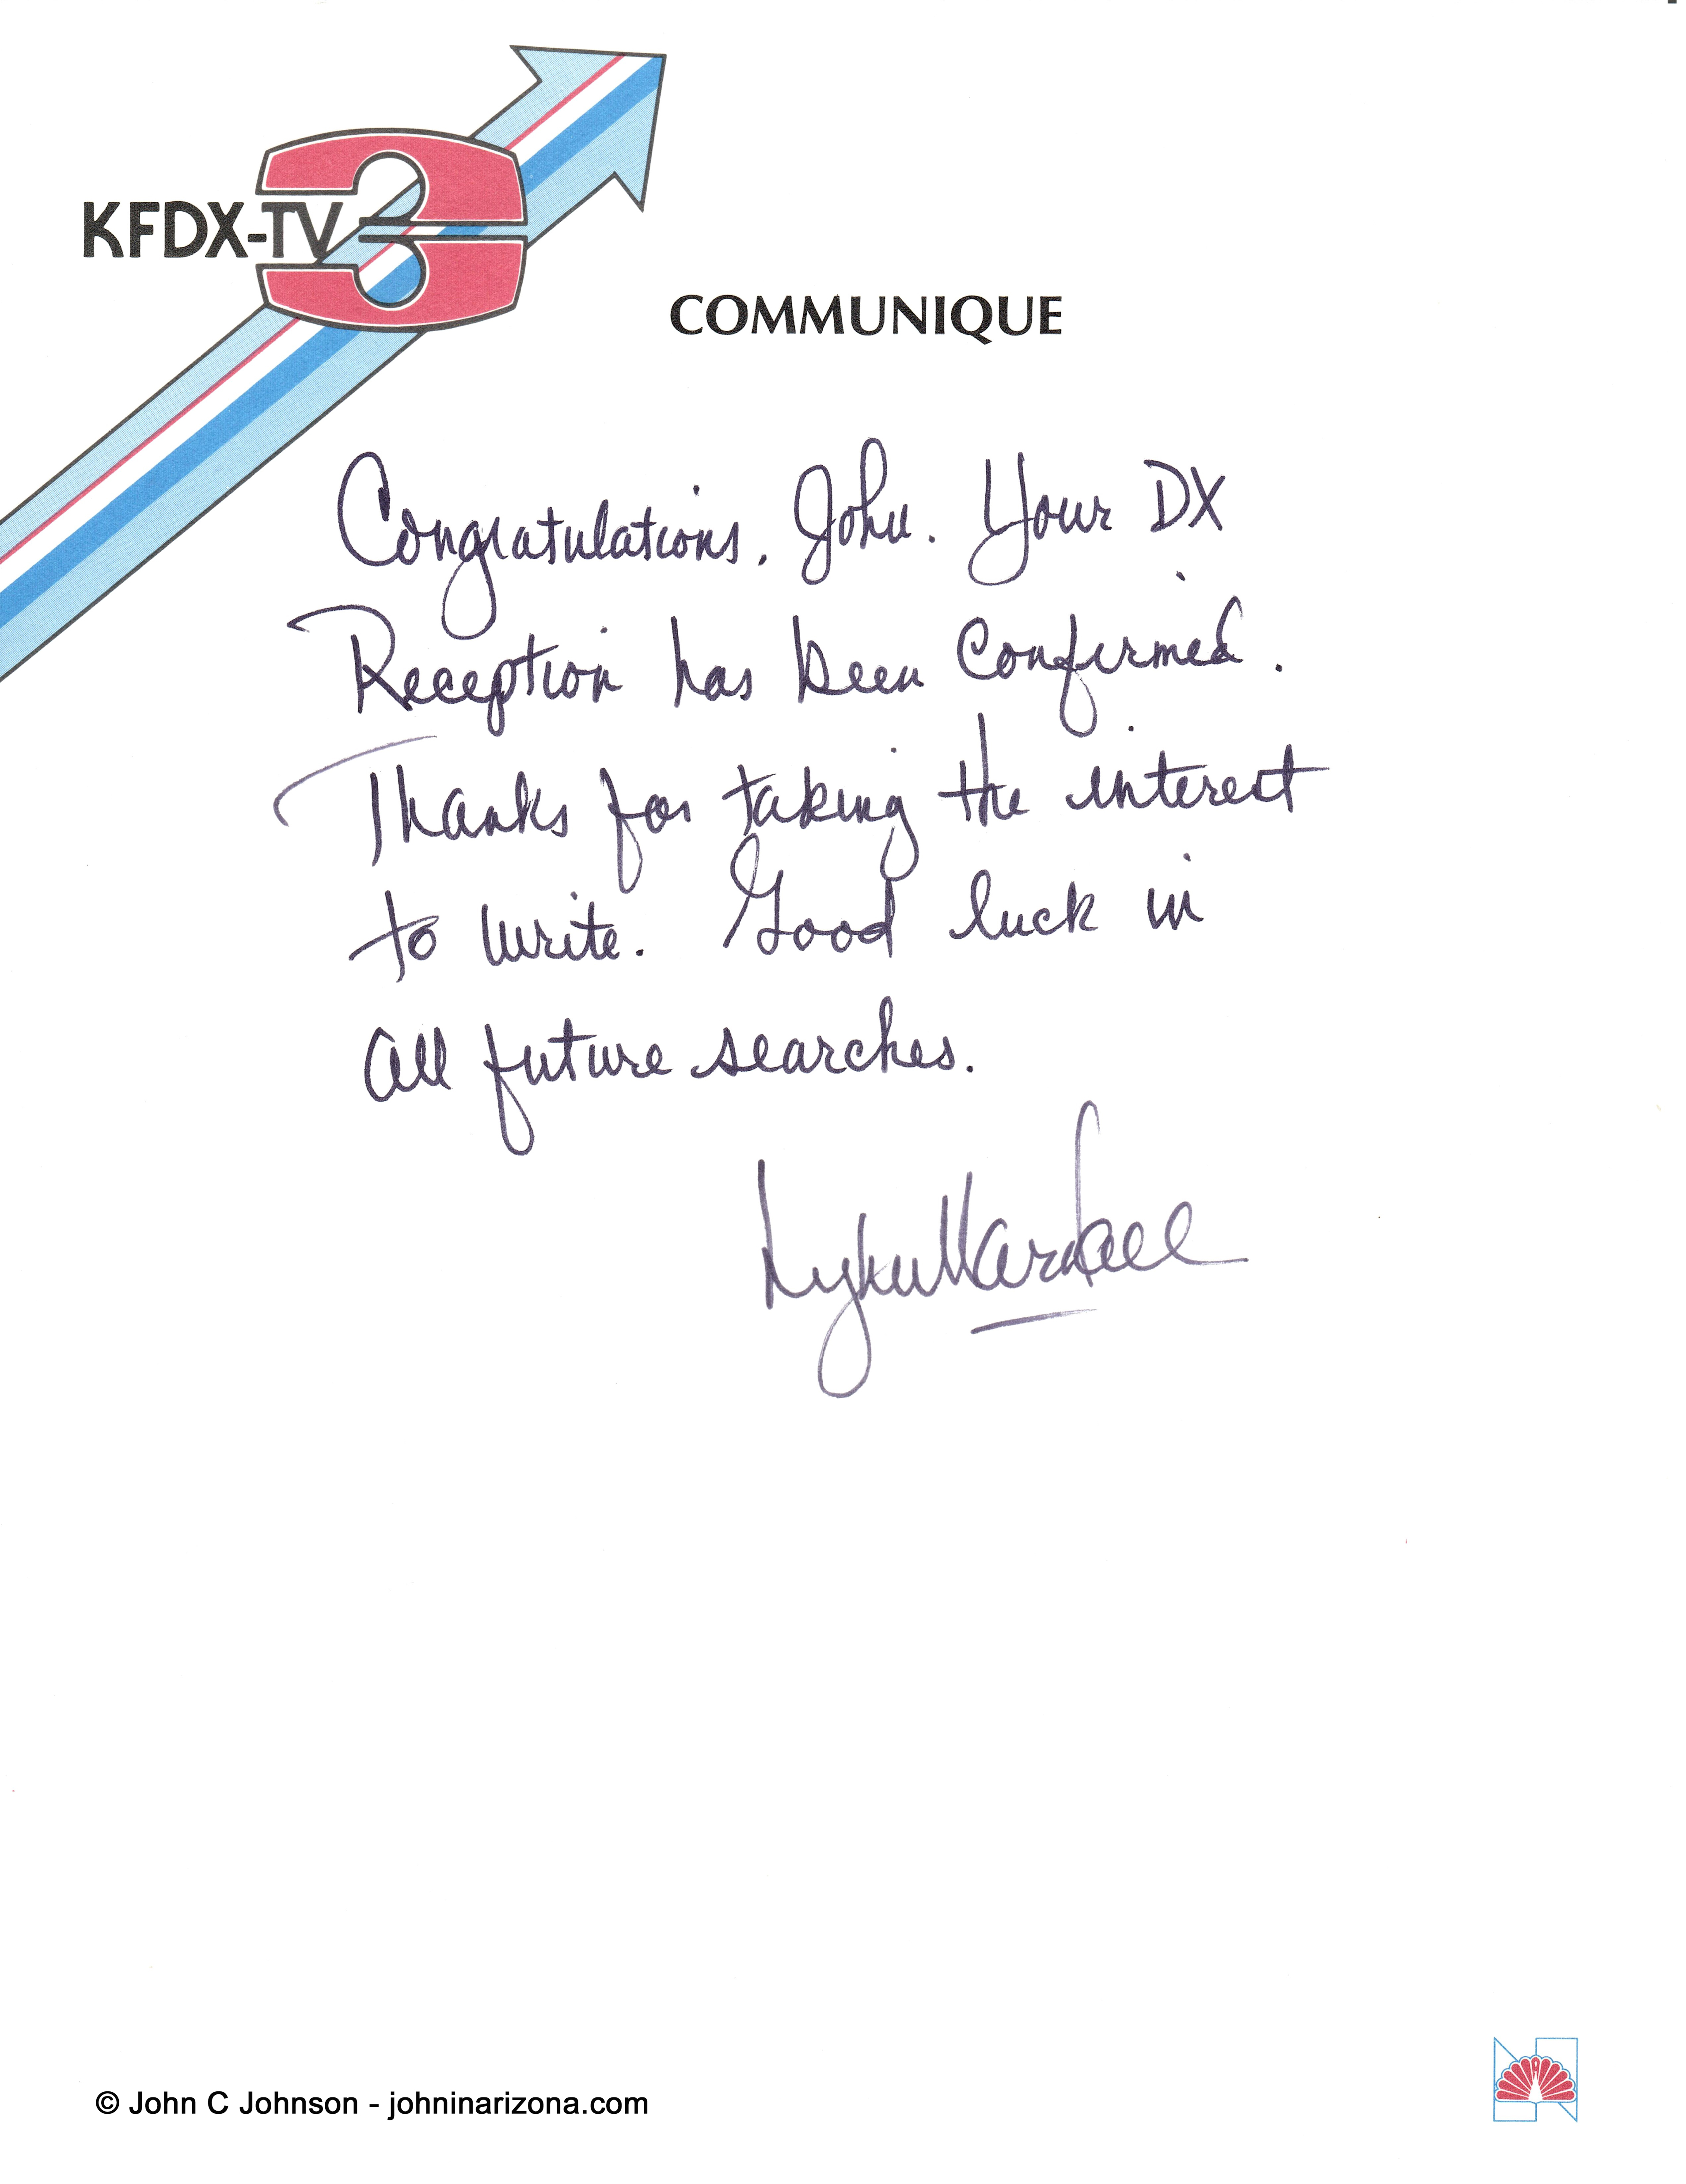 KFDX-TV 3
COMMUNIQUE
Congratulations, John. Your DX
Reception has been Confirmed.
Thanks for taking the interest
to write. Good luck in
all future searches.
© John C Johnson - johninarizona.com